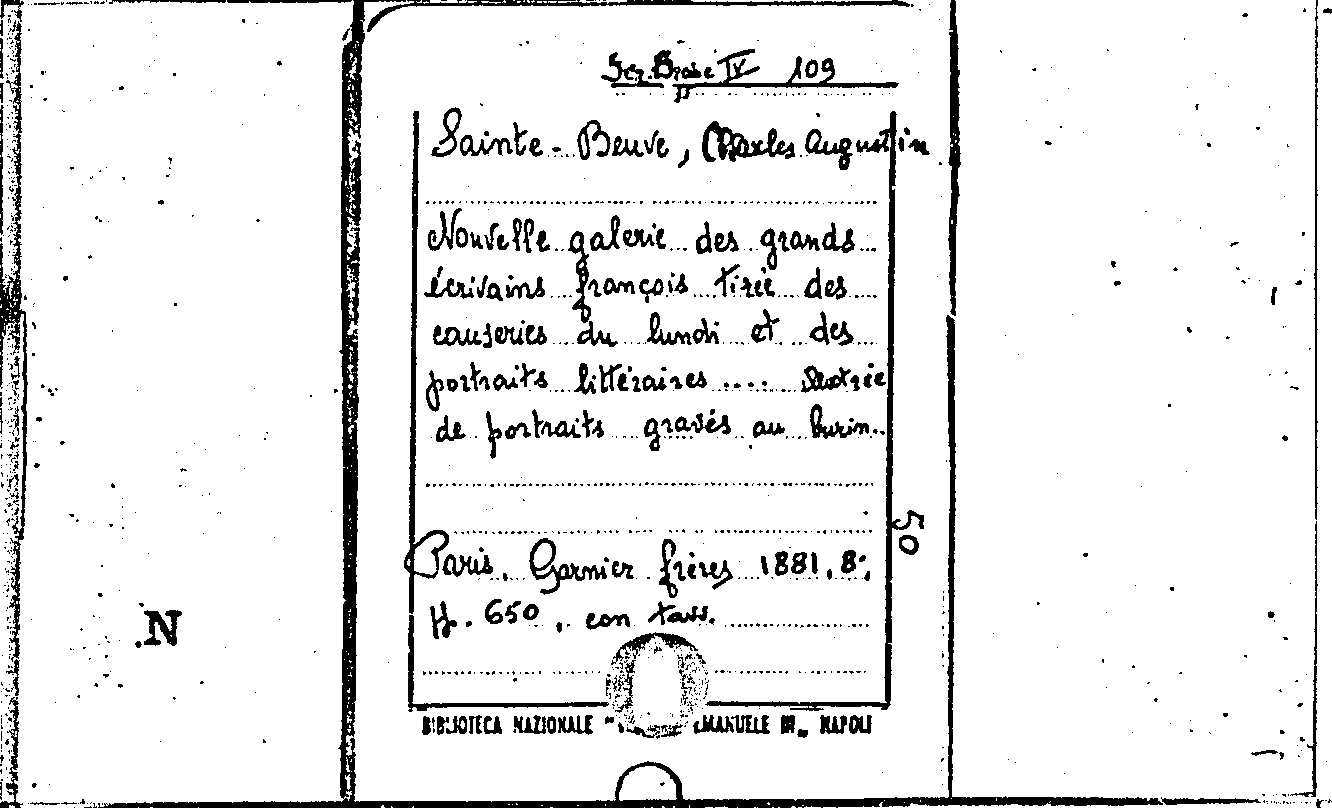 IV 109
Sainte-Beuve, Charles Augustin
Nouvelle galerie des grands
écrivains françois tirée des
causeries du lundi et des
portraits littéraires .... illustrée
de portraits gravés au burin..
50
Paris, Garnier frères 1881, 8°,
pp. 650, con tavv.
N.
BIBLIOTECA NAZIONALE " EMANUELE III„ NAPOLI